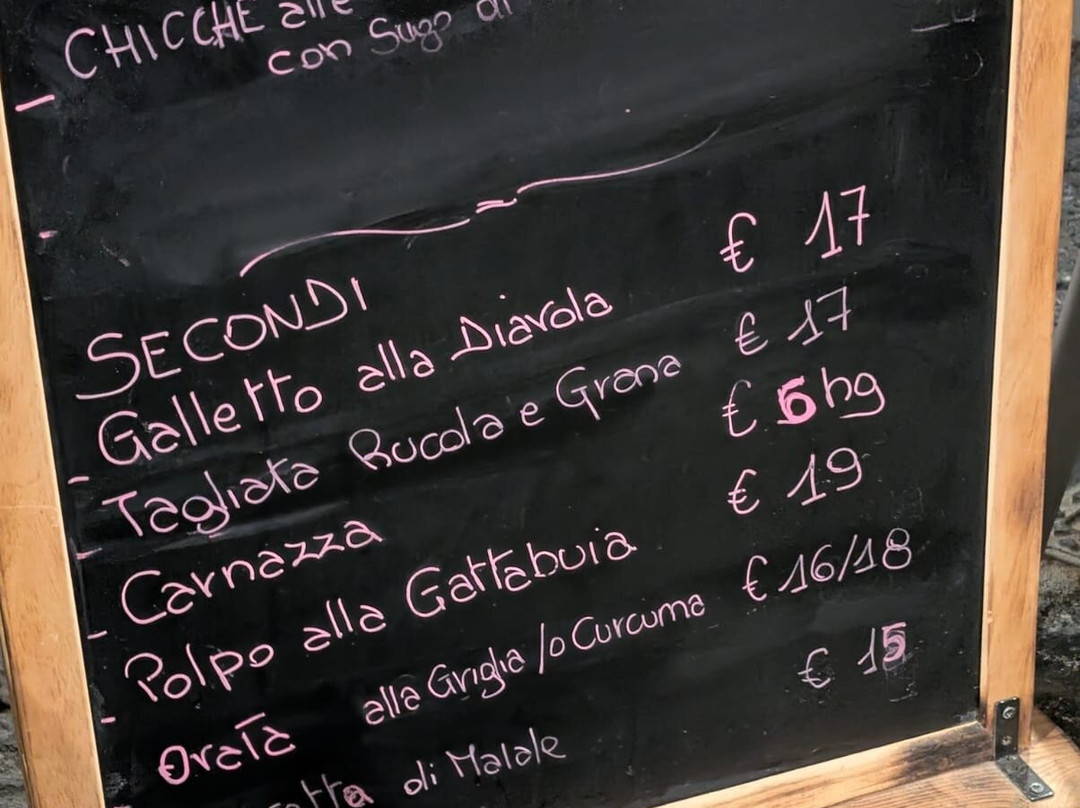 CHICCHE alle
con Sugo di
SECONDI
- Galletto alla Diavola € 17
- Tagliata Rucola e Grana € 17
- Carnazza € 6 hg
- Polpo alla Gattabuia € 19
Orata alla Griglia /o Curcuma € 16/18
di Maiale € 15